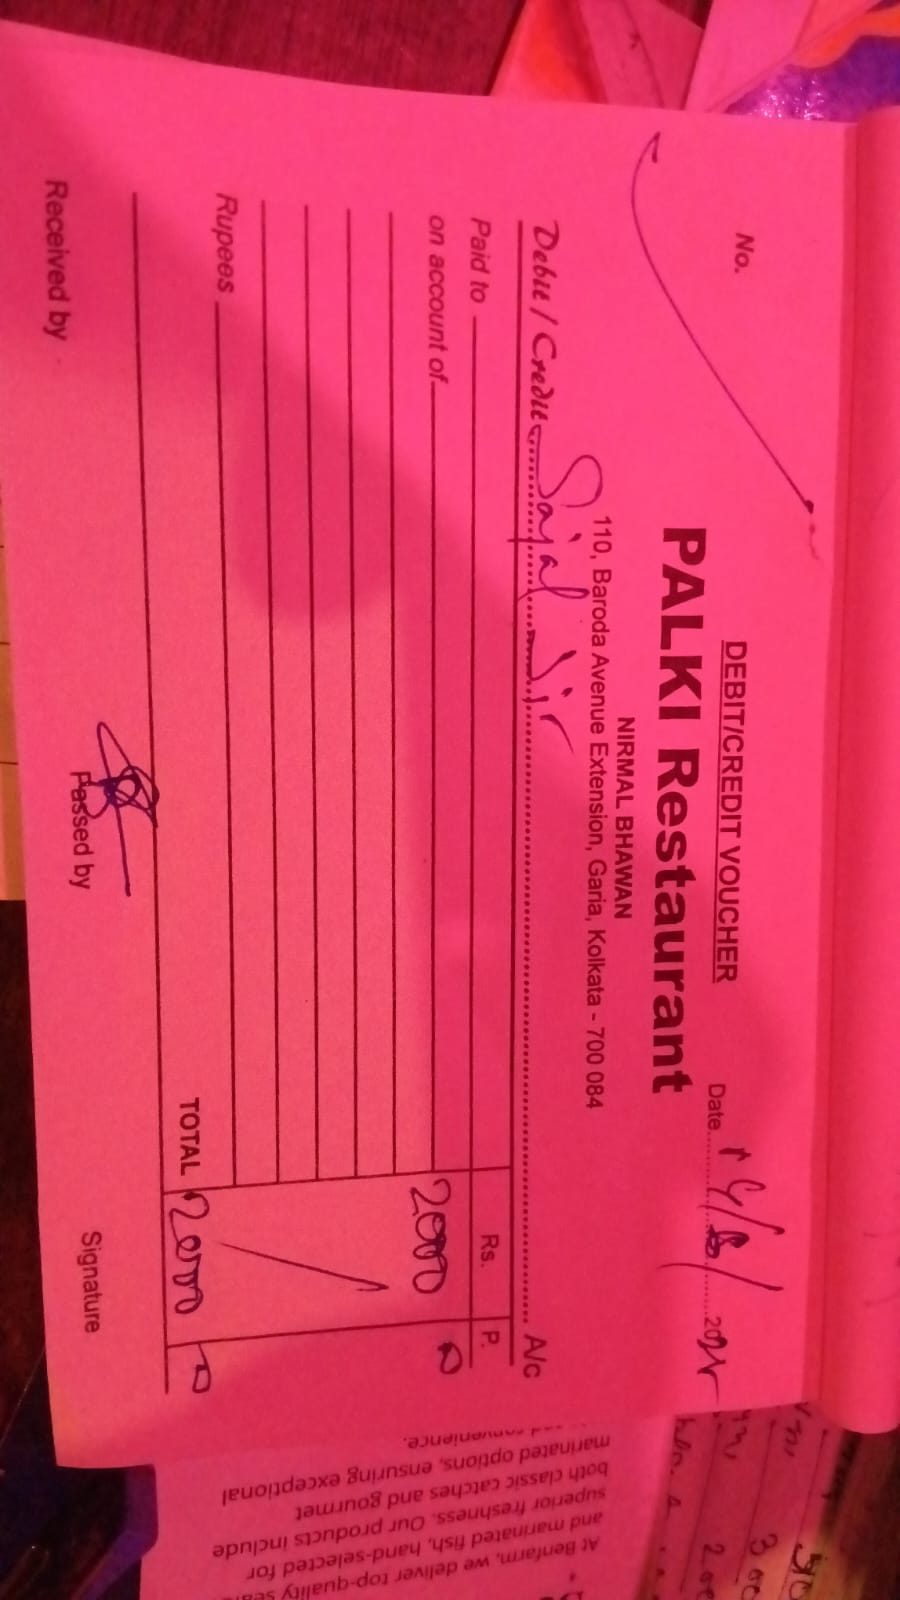 DEBIT/CREDIT VOUCHER
No.
Date
PALKI Restaurant
NIRMAL BHAWAN
110, Baroda Avenue Extension, Garia, Kolkata - 700 084
Debit / Credit Sajal Dir A/c
Paid to Rs. P.
on account of 2000 0
Rupees
TOTAL 2000 0
Received by Passed by Signature
At Benfarm, we deliver top-quality
and marinated fish, hand-selected for
superior freshness. Our products include
both classic catches and gourmet
marinated options, ensuring exceptional
convenience.